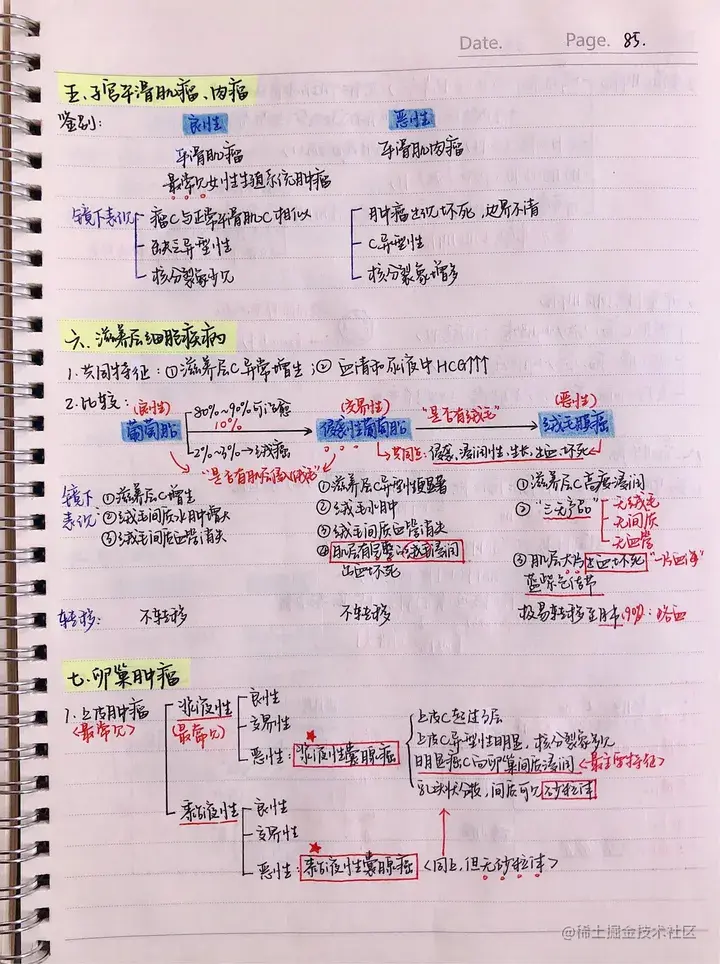 Date. Page. 85.
五、子宫平滑肌瘤、肉瘤
鉴别: 良性 恶性
平滑肌瘤 平滑肌肉瘤
最常见女性生殖系统肿瘤
镜下表现 瘤C与正常平滑肌C相似 肿瘤出现坏死,边界不清
缺乏异型性 C异型性
核分裂象少见 核分裂象增多
六、滋养层细胞疾病
1.共同特征:①滋养层C异常增生;②血清和尿液中HCG↑↑↑
2.比较: (良性) 80%~90%可治愈 (交界性) "是否有绒毛" (恶性)
葡萄胎 10% 侵袭性葡萄胎 绒毛膜癌
2%~3%→绒癌 共同点:侵袭,浸润性,生长,出血坏死
"是否有肌层侵入绒毛"
镜下表现 ①滋养层C增生 ①滋养层C异型性显著 ①滋养层C高度浸润
②绒毛间质水肿增大 ②绒毛水肿 ②"三无产品" 无绒毛
③绒毛间质血管消失 ③绒毛间质血管消失 无间质
④肌层有完整的绒毛浸润 无血管
出血坏死 ③肌层大片出血坏死
蓝紫色结节
转移: 不转移 不转移 极易转移至肺(90%):咯血
七、卵巢肿瘤
1.上皮肿瘤 浆液性 良性
<最常见> (最常见) 交界性
恶性:浆液性囊腺癌
上皮C超过3层
上皮C异型性明显,核分裂象多见
明显癌C向卵巢间质浸润<最主要特征>
乳头状分散,间质可见砂粒体
黏液性 良性
交界性
恶性:黏液性囊腺癌<同上,但无砂粒体>
@稀土掘金技术社区